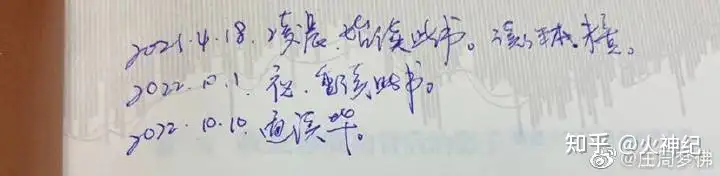 2021.4.18.凌晨.始读此书。读半本.搁。
2022.10.1.夜.重读此书。
2022.10.10.通读毕。
知乎 @火神纪
@庄周梦佛